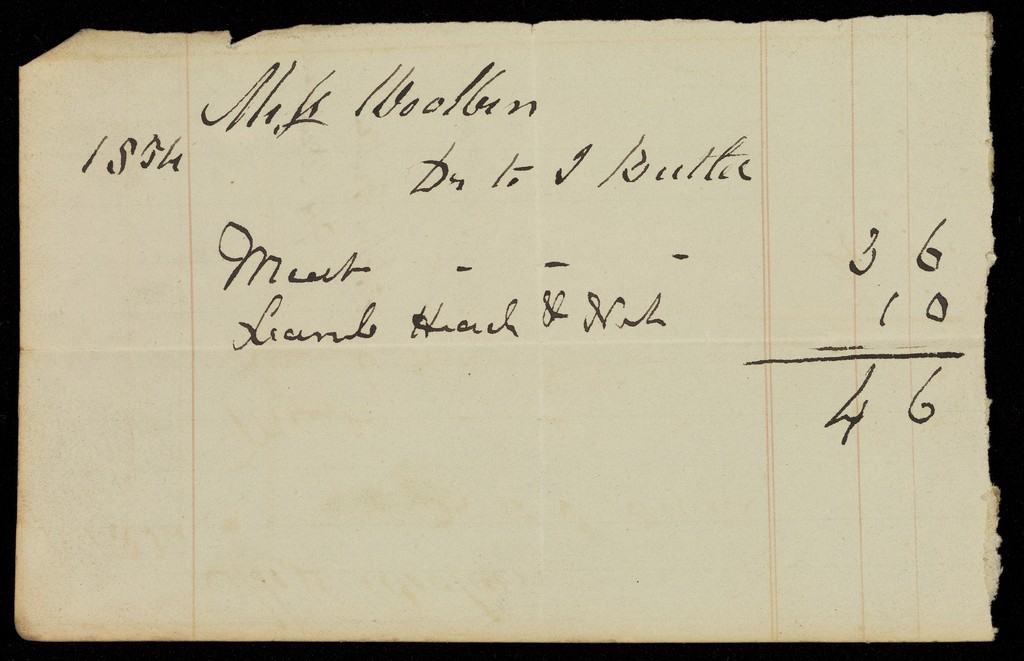 Miss Woolben
1854
Dr to J Butler
Meat - - - 3 6
Lamb Head & 1 0
4 6